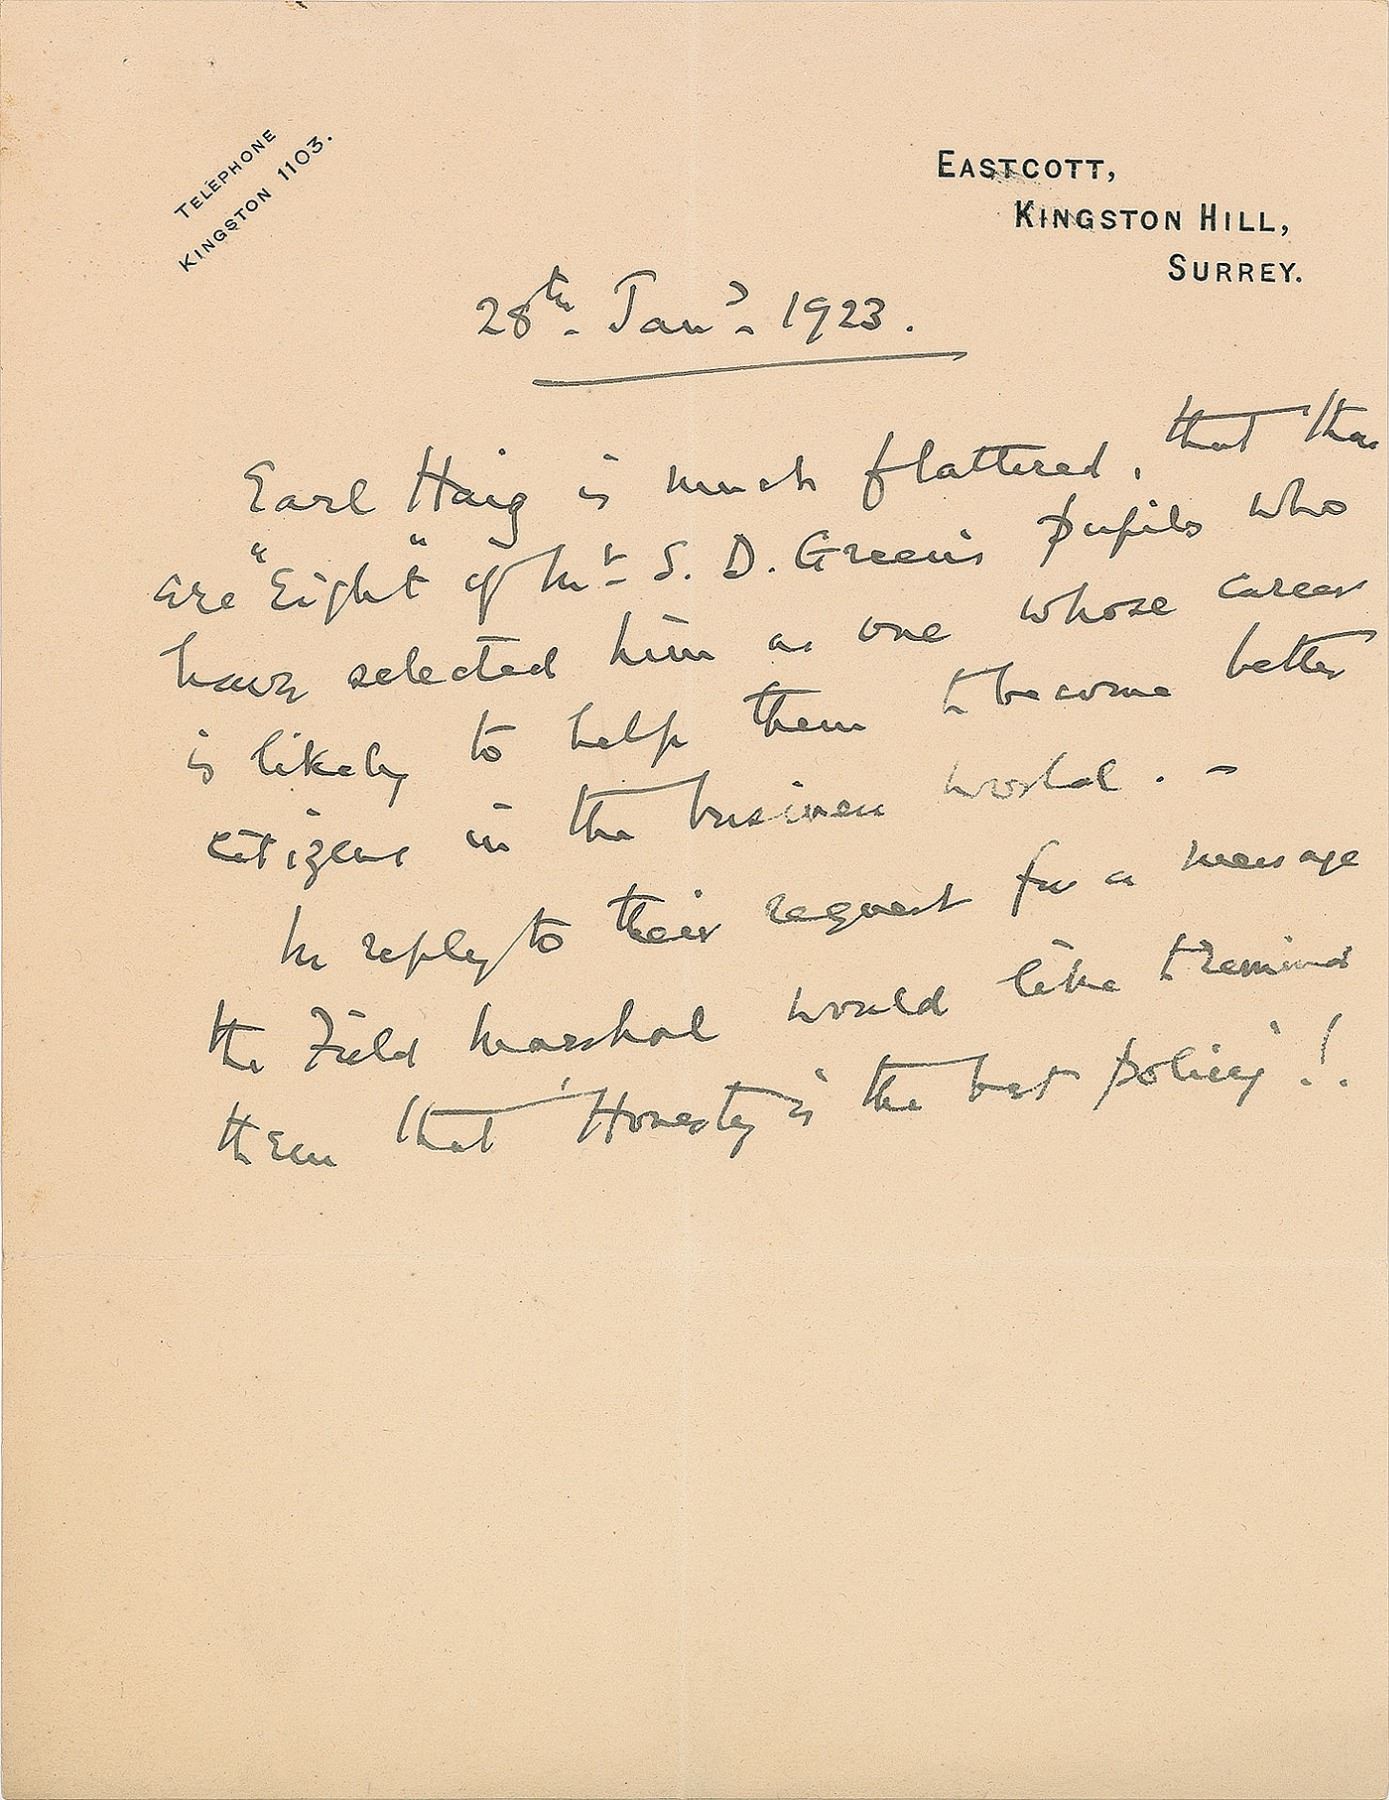 TELEPHONE
KINGSTON 1103.
EASTCOTT,
KINGSTON HILL,
SURREY.
28th Jany 1923.
Earl Haig is much flattered, that there
are "Eight" of Mr S. D. Green's pupils who
have selected him as one whose career
is likely to help them to become better
citizens in the business world. -
In reply to their request for a message
the Field Marshal would like to remind
them that 'Honesty is the best policy'!.